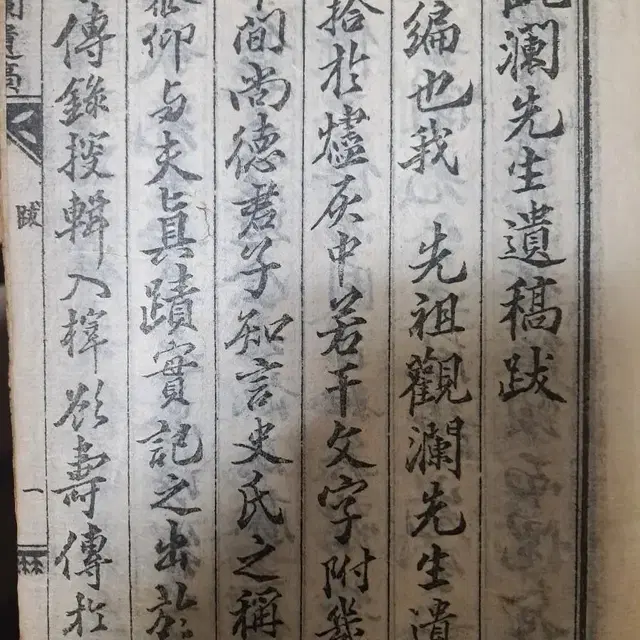 瀾先生遺稿跋
編也我 先祖觀瀾先生遺
拾於燼灰中若干文字附
間尚德君子知言史氏之稱
仰与夫眞蹟實記之出於
傳錄授輯入擇欲壽傳於
跋
一